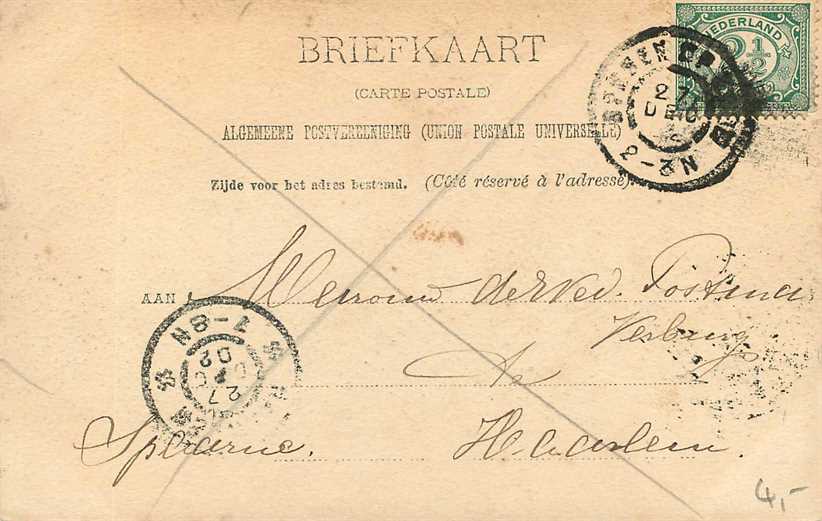 BRIEFKAART
(CARTE POSTALE)
ALGEMEENE POSTVEREENIGING (UNION POSTALE UNIVERSELLE)
Zijde voor het adres bestemd. (Côté réservé à l'adresse).
NEDERLAND
2½
DEC
2-3N
AAN Mevrouw de Wed. Postma
Verburg
Te
Spaarne. Haarlem.
7-8N
27
DEC
02
4,-